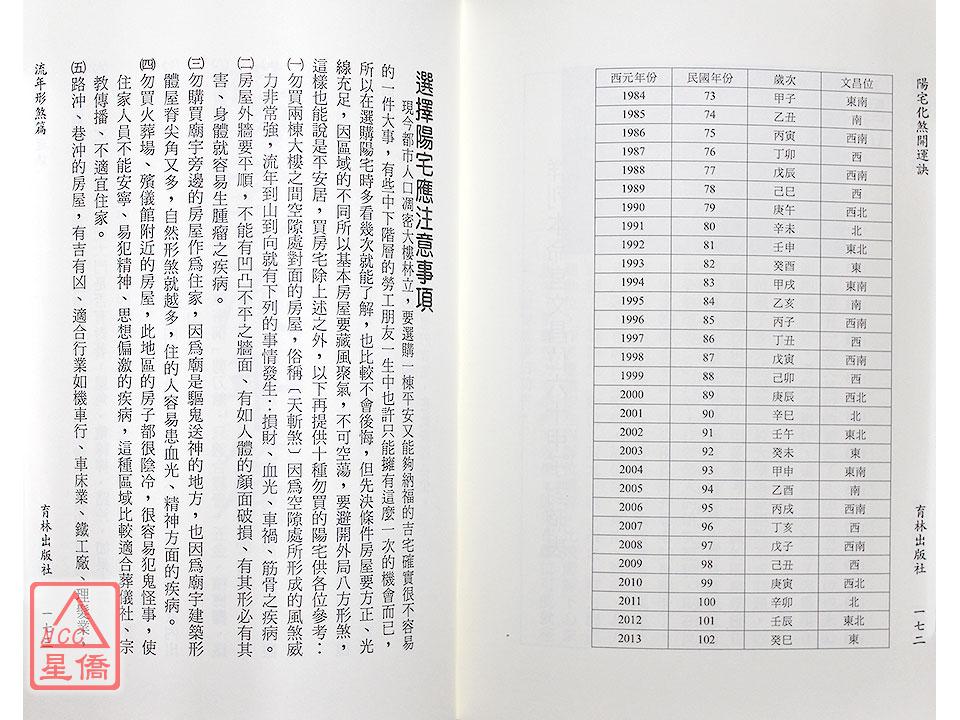 陽宅化煞開運訣
西元年份 民國年份 歲次 文昌位
1984 73 甲子 東南
1985 74 乙丑 南
1986 75 丙寅 西南
1987 76 丁卯 西
1988 77 戊辰 西南
1989 78 己巳 西
1990 79 庚午 西北
1991 80 辛未 北
1992 81 壬申 東北
1993 82 癸酉 東
1994 83 甲戌 東南
1995 84 乙亥 南
1996 85 丙子 西南
1997 86 丁丑 西
1998 87 戊寅 西南
1999 88 己卯 西
2000 89 庚辰 西北
2001 90 辛巳 北
2002 91 壬午 東北
2003 92 癸未 東
2004 93 甲申 東南
2005 94 乙酉 南
2006 95 丙戌 西南
2007 96 丁亥 西
2008 97 戊子 西南
2009 98 己丑 西
2010 99 庚寅 西北
2011 100 辛卯 北
2012 101 壬辰 東北
2013 102 癸巳 東
育林出版社
一七二
選擇陽宅應注意事項
現今都市人口凋密大樓林立，要選購一棟平安又能夠納福的吉宅確實很不容易
的一件大事，有些中下階層的勞工朋友一生中也許只能擁有這麼一次的機會而已，
所以在選購陽宅時多看幾次就能了解，也比較不會後悔，但先決條件房屋要方正、光
線充足，因區域的不同所以基本房屋要藏風聚氣，不可空蕩，要避開外局八方形煞，
這樣也能說是平安居，買房宅除上述之外，以下再提供十種勿買的陽宅供各位參考：
㈠勿買兩棟大樓之間空隙處對面的房屋，俗稱〔天斬煞〕因為空隙處所形成的風煞威
力非常強，流年到山到向就有下列的事情發生：損財、血光、車禍、筋骨之疾病。
㈡房屋外牆要平順，不能有凹凸不平之牆面、有如人體的顏面破損、有其形必有其
害、身體就容易生腫瘤之疾病。
㈢勿購買廟宇旁邊的房屋作為住家，因為廟是驅鬼送神的地方，也因為廟宇建築形
體屋脊尖角又多，自然形煞就越多，住的人容易患血光、精神方面的疾病。
㈣勿買火葬場、殯儀館附近的房屋，此地區的房子都很陰冷，很容易犯鬼怪事，使
住家人員不能安寧、易犯精神、思想偏激的疾病，這種區域比較適合葬儀社、宗
教傳播、不適宜住家。
㈤路沖、巷沖的房屋，有吉有凶、適合行業如機車行、車床業、鐵工廠、理髮業、
流年形煞篇
育林出版社
一七三
NCC
星僑